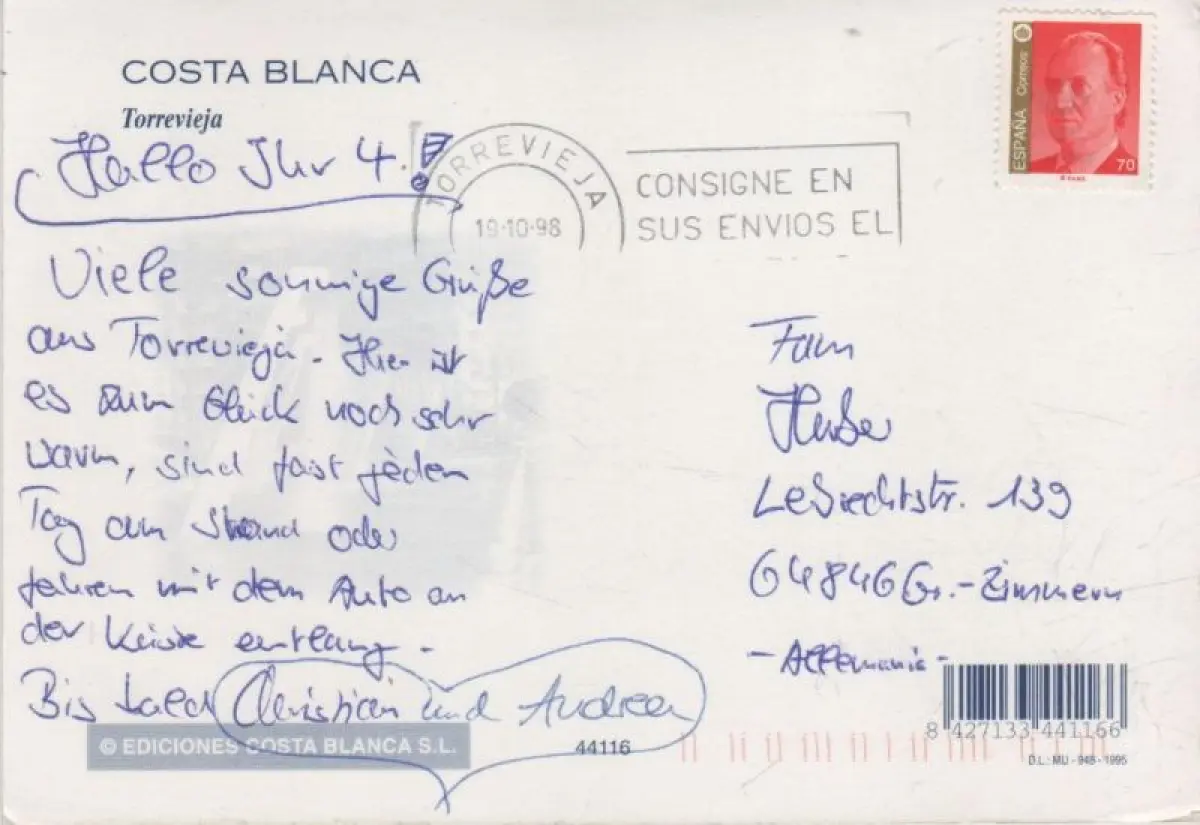 COSTA BLANCA
Torrevieja
Hallo Ihr 4!
Viele sonnige Grüße
aus Torrevieja. Hier ist
es zum Glück noch sehr
warm, sind fast jeden
Tag am Strand oder
fahren mit dem Auto an
der Küste entlang.
Bis bald Christian und Andrea
© EDICIONES COSTA BLANCA S.L.
44116
TORREVIEJA
19-10-98
CONSIGNE EN
SUS ENVIOS EL
ESPAÑA Correos
70
Fam
Huber
Lebrechtstr. 139
64846 Gr.-Zimmern
- Allemania -
8 427133 441166
D.L.: MU - 948 - 1995